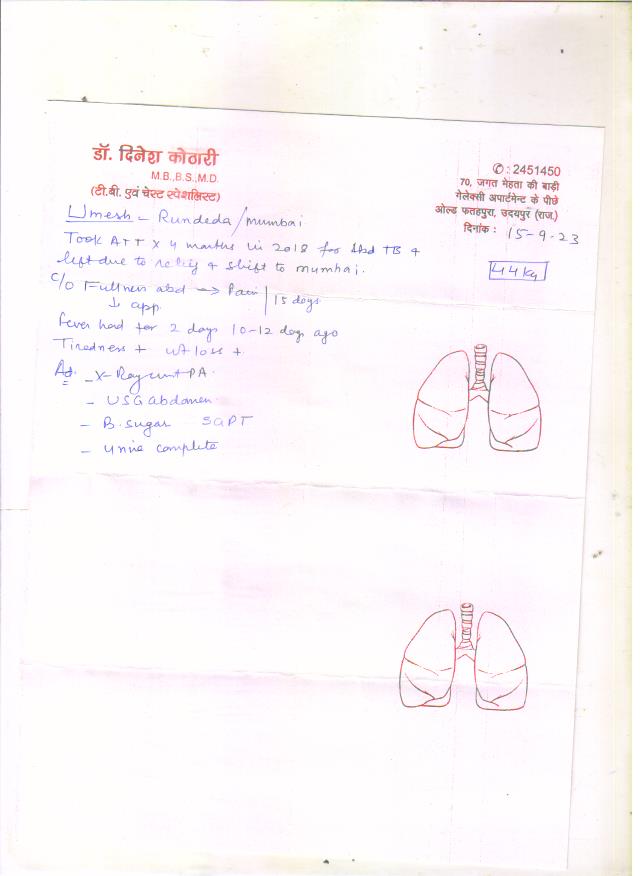 डॉ. दिनेश कोठारी
M.B.,B.S.,M.D.
(टी.बी. एवं चेस्ट स्पेशलिस्ट)
✆ : 2451450
70, जगत मेहता की बाड़ी
गेलेक्सी अपार्टमेन्ट के पीछे
ओल्ड फतहपुरा, उदयपुर (राज.)
दिनांक : 15-9-23
Umesh - Rundeda/mumbai
Took ATT x 4 months in 2018 for Abd TB &
left due to relief & shift to mumbai.
44 kg
C/o Fullness abd → Pain | 15 days
↓ app
Fever had for 2 days 10-12 days ago
Tiredness + wt loss +
Ad. - X-Ray PA.
- USG abdomen
- B. sugar SGPT
- urine complete